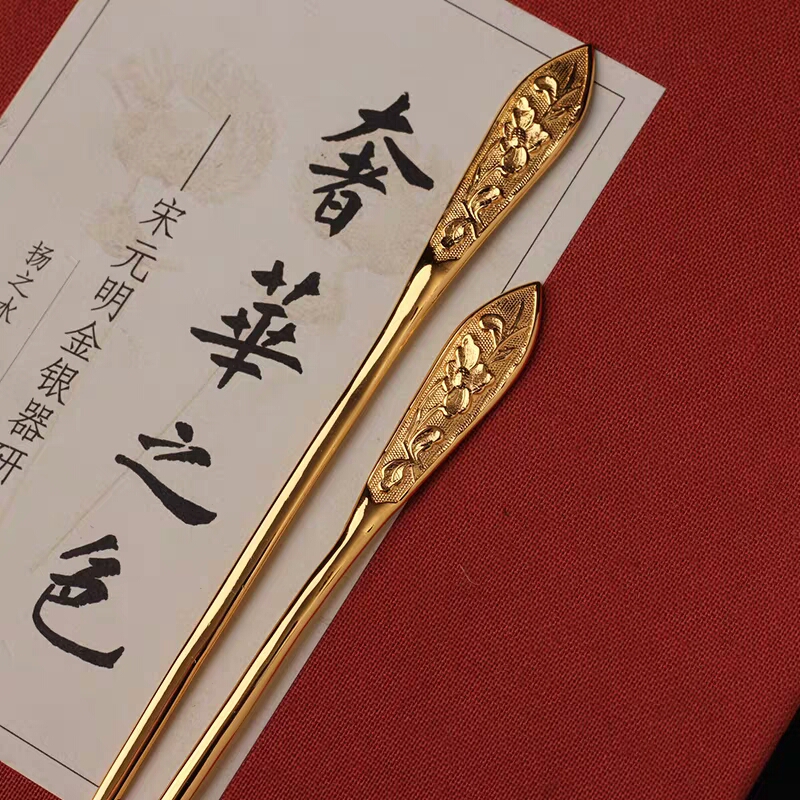 奢華之色
宋元明金银器研
扬之水